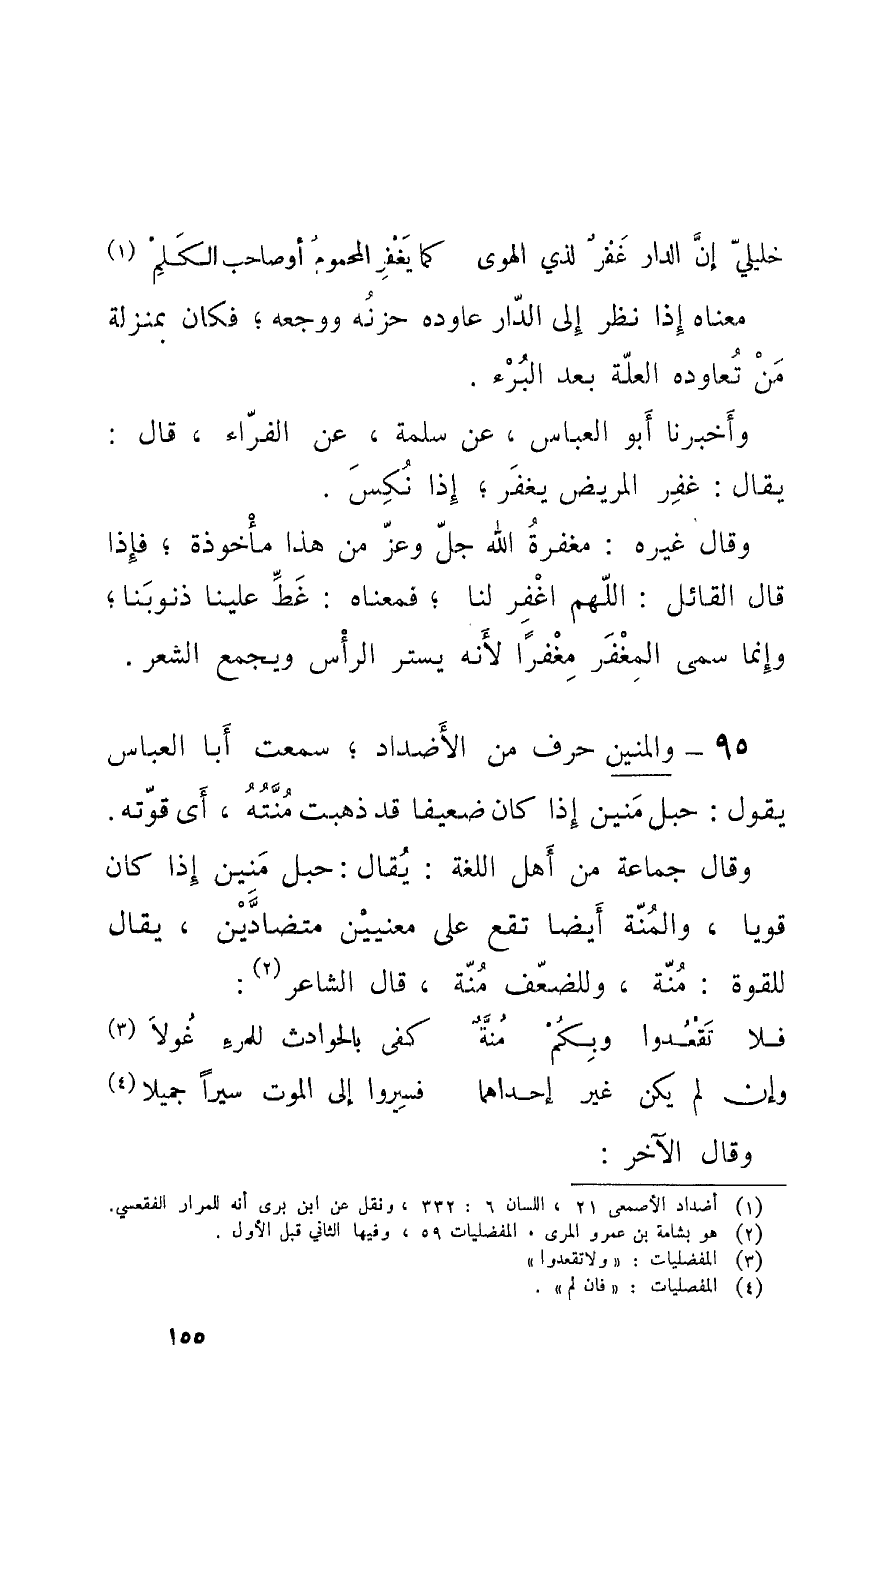 خليليّ إنَّ الدار غَفْرٌ لذي الهوى كما يَغْفِر المحمومُ أوصاحب الكَلِمْ (١)
معناه إذا نظر إلى الدّار عاوده حزنُه ووجعه ؛ فكان بمنزلة
مَنْ تُعاوده العلّة بعد البُرْء .
وأَخبرنا أَبو العباس ، عن سلمة ، عن الفرّاء ، قال :
يقال : غفِر المريض يغفَر ؛ إذا نُكِسَ .
وقال غيره : مغفرةُ الله جلّ وعزّ من هذا مأْخوذة ؛ فإذا
قال القائل : اللّهم اغْفِر لنا ؛ فمعناه : غَطِّ علينا ذنوبَنا ؛
وإنما سمى المِغْفَر مِغْفرًا لأَنه يستر الرأْس ويجمع الشعر .
٩٥ – والمنين حرف من الأَضداد ؛ سمعت أَبا العباس
يقول : حبل مَنين إذا كان ضعيفا قد ذهبت مُنَّتُهُ ، أَى قوّته .
وقال جماعة من أَهل اللغة : يُقال : حبل مَنِين إذا كان
قويا ، والمُنّة أَيضا تقع على معنييْن متضادَّيْن ، يقال
للقوة : مُنّة ، وللضعّف مُنّة ، قال الشاعر (٢) :
فلا تَقْعُدوا وبِكُمْ مُنَّةٌ كفى بالحوادث للمرءِ غُولاَ (٣)
وإن لم يكن غير إحداهما فسِيروا إلى الموت سيراً جميلا (٤)
وقال الآخر :
(١) أضداد الأصمعى ٢١ ، اللسان ٦ : ٣٣٢ ، ونقل عن ابن برى أنه للمرار الفقعسي.
(٢) هو بشامة بن عمرو المرى . المفضليات ٥٩ ، وفيها الثاني قبل الأول .
(٣) المفضليات : « ولاتقعدوا »
(٤) المفصليات : « فان لم » .
١٥٥